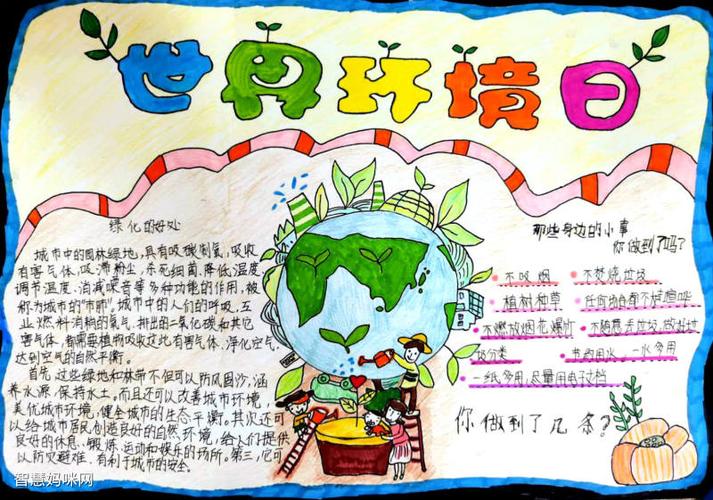 世界环境日
绿化的好处
城市中的园林绿地,具有吸碳制氧,吸收
有害气体,吸滞粉尘,杀死细菌,降低温度,
调节湿度,消减噪音等多种功能的作用,被
称为城市的"市肺"。城市中的人们的呼吸,工
业燃料消耗的氧气,排出的二氧化碳和其它
害气体,都需要植物吸收这此有害气体,净化空气,
达到空气的自然平衡。
首先,这些绿地和林带不但可以防风固沙,涵
养水源,保持水土,而且还可以改善城市环境,
美优城市环境,健全城市的生态平衡。其次还可
以给城市居民创造良好的自然环境,给人们提供
良好的休息、锻炼、运动和娱乐的场所。第三,它可
以防灾避难,有利于城市的安全。
那些身边的小事
你做到了吗?
不吸烟
不焚烧垃圾
植树种草
任何动身都不掉喧哗
不燃放烟花爆竹
不随意丢垃圾,做好垃
圾分类
节约用水 一水多用
一纸多用,尽量用电子文档
你做到了几条?
智慧妈咪网